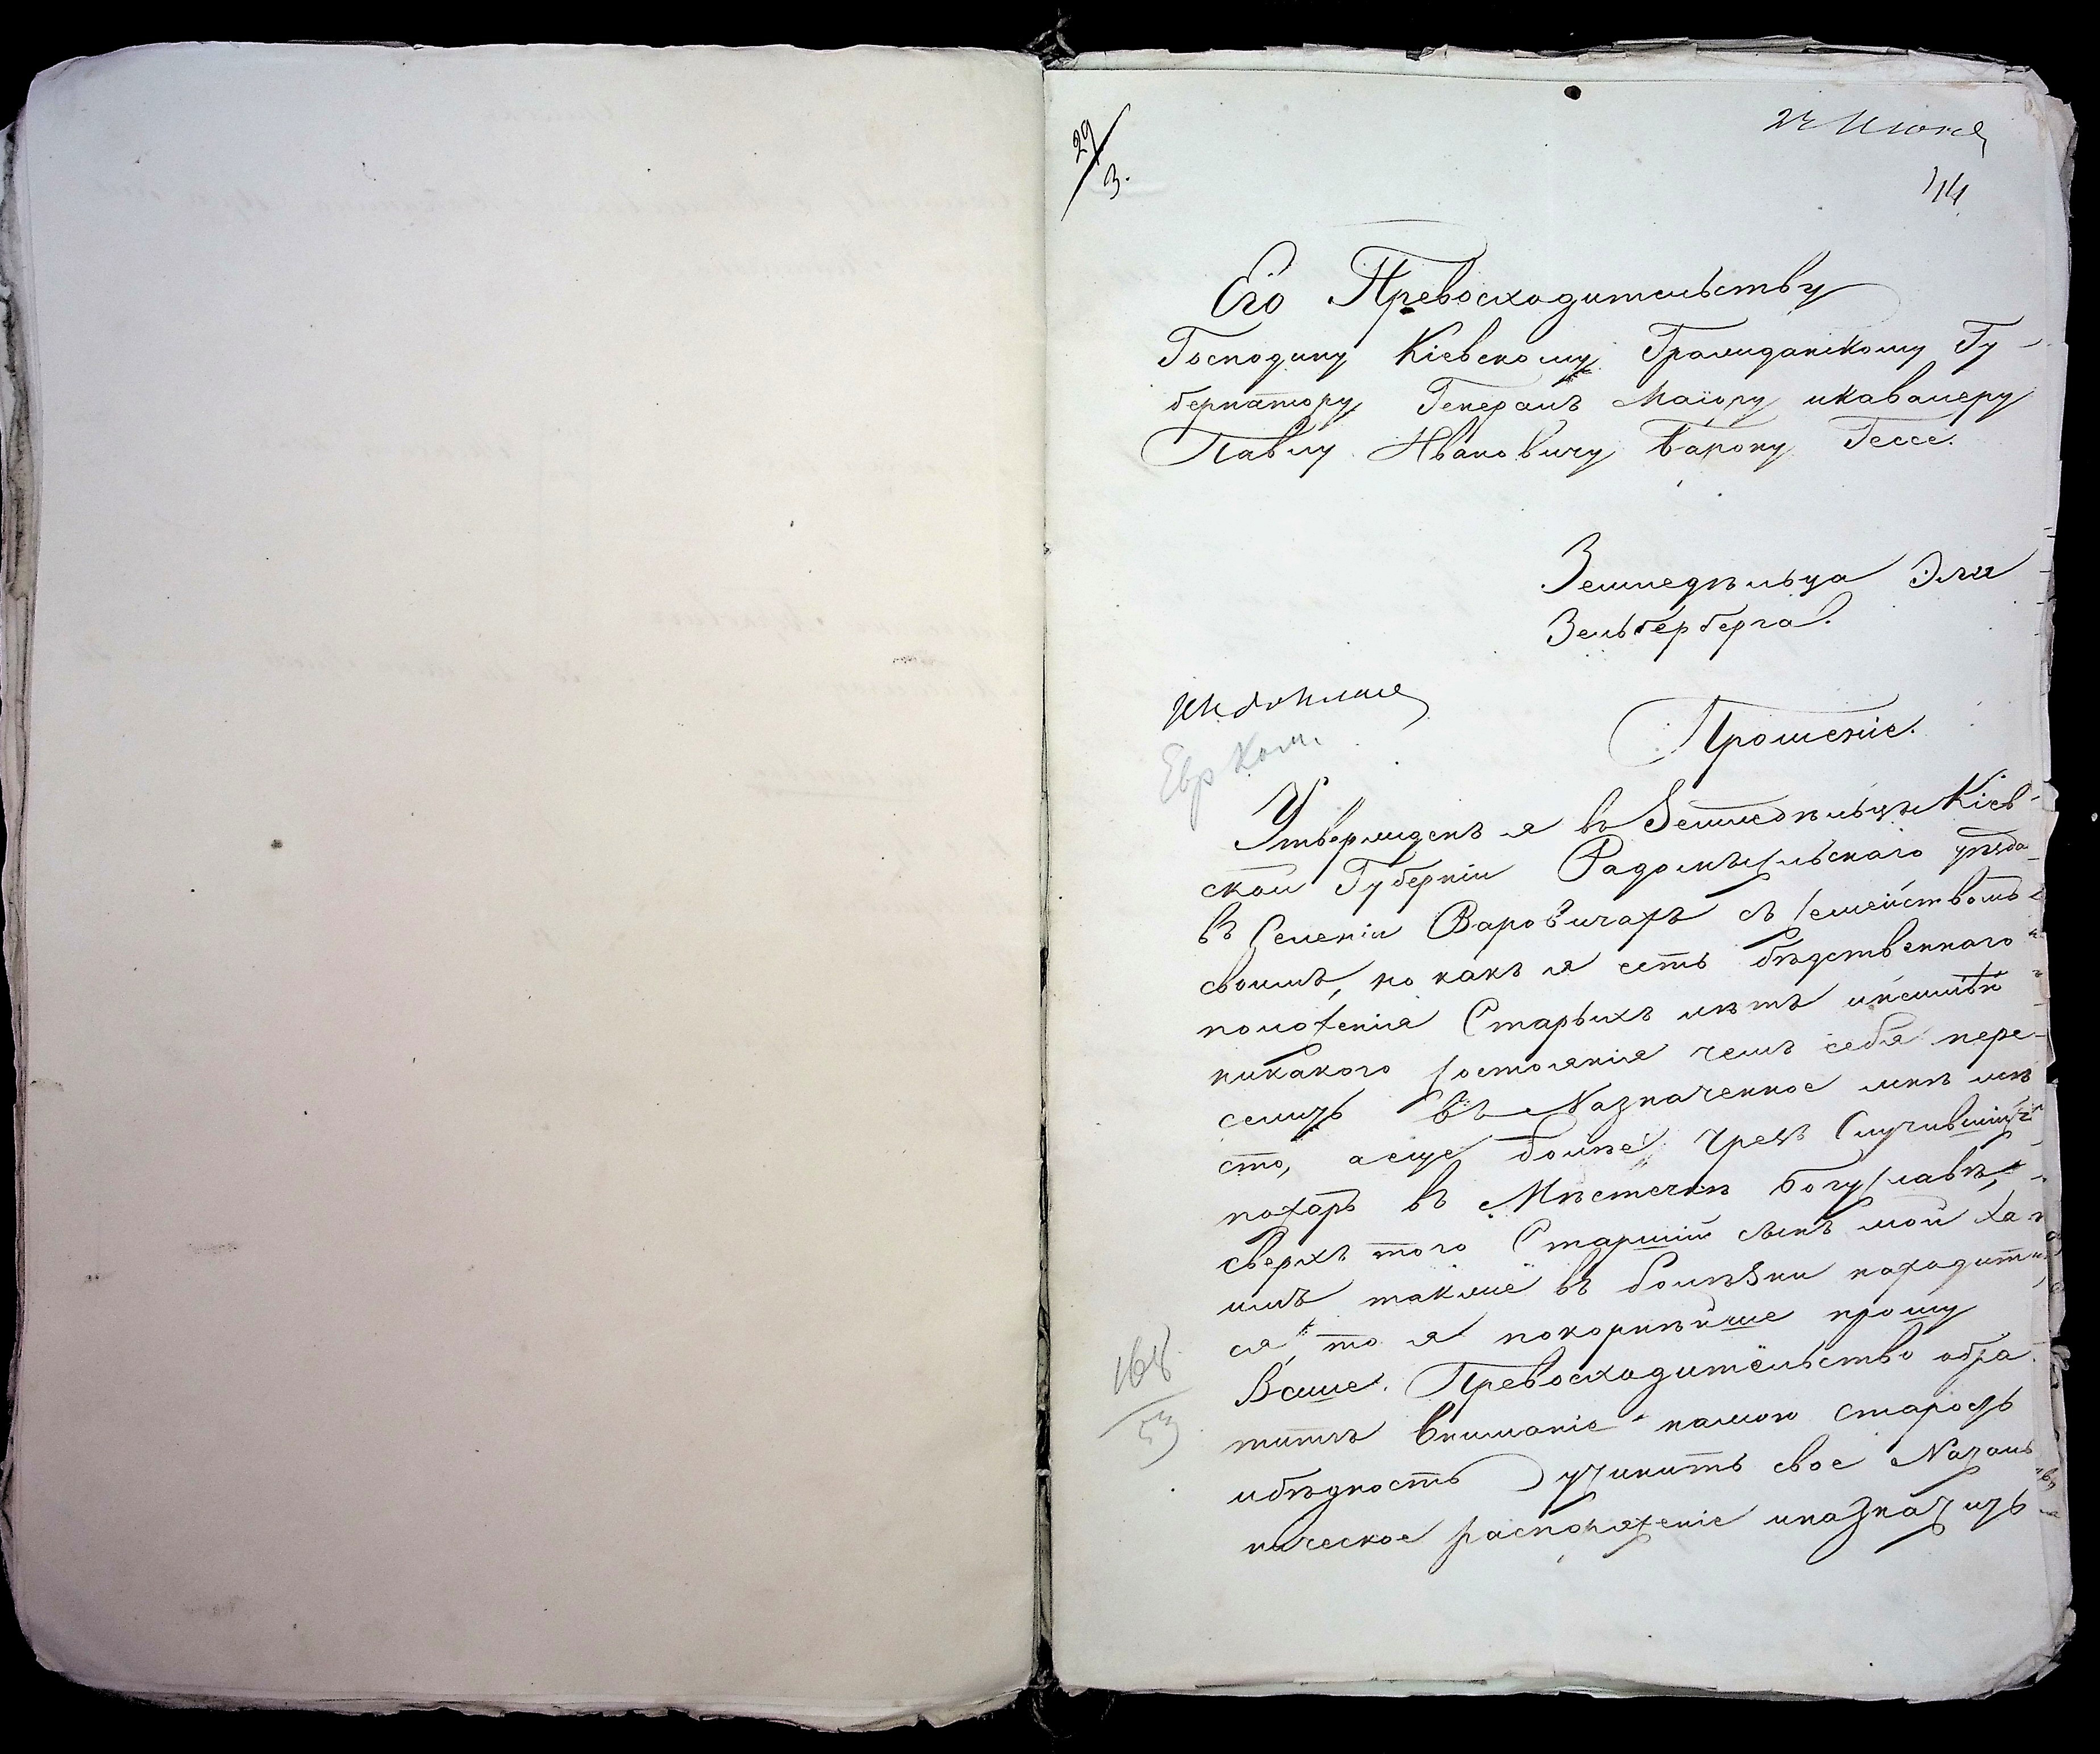 29/3.
24 Июня
114
Его Превосходительству
Господину Кіевскому Гражданскому Гу-
бернатору Генералъ Маіору икавалеру
Павлу Ивановичу Барону Гессе.
Земледѣльца Эли
Зельберберга.
Прошеніе.
Евр Ком.
Утвержденъ я въ Земледѣльцы Кіев-
ской Губерніи Радомысльскаго уѣзда
въ Селеніи Варовичахъ съ семействомъ
своимъ, но какъ я есть бѣдственнаго
положенія Старыхъ лѣтъ
никакого состоянія чемъ себя пере-
селить въ Назначенное мнѣ мѣ
сто, аеще болѣе чрезъ Случившійся
пожаръ въ Мѣстечкѣ Богуславѣ,
сверхъ того Старшій сынъ мой Ха
имъ также въ болѣзни находит
ся, то я покорнѣйше прошу
Ваше Превосходительство обра
тить вниманіе намою старость
ибѣдность учинить свое Началь
ническое распоряженіе иназначить
168
53